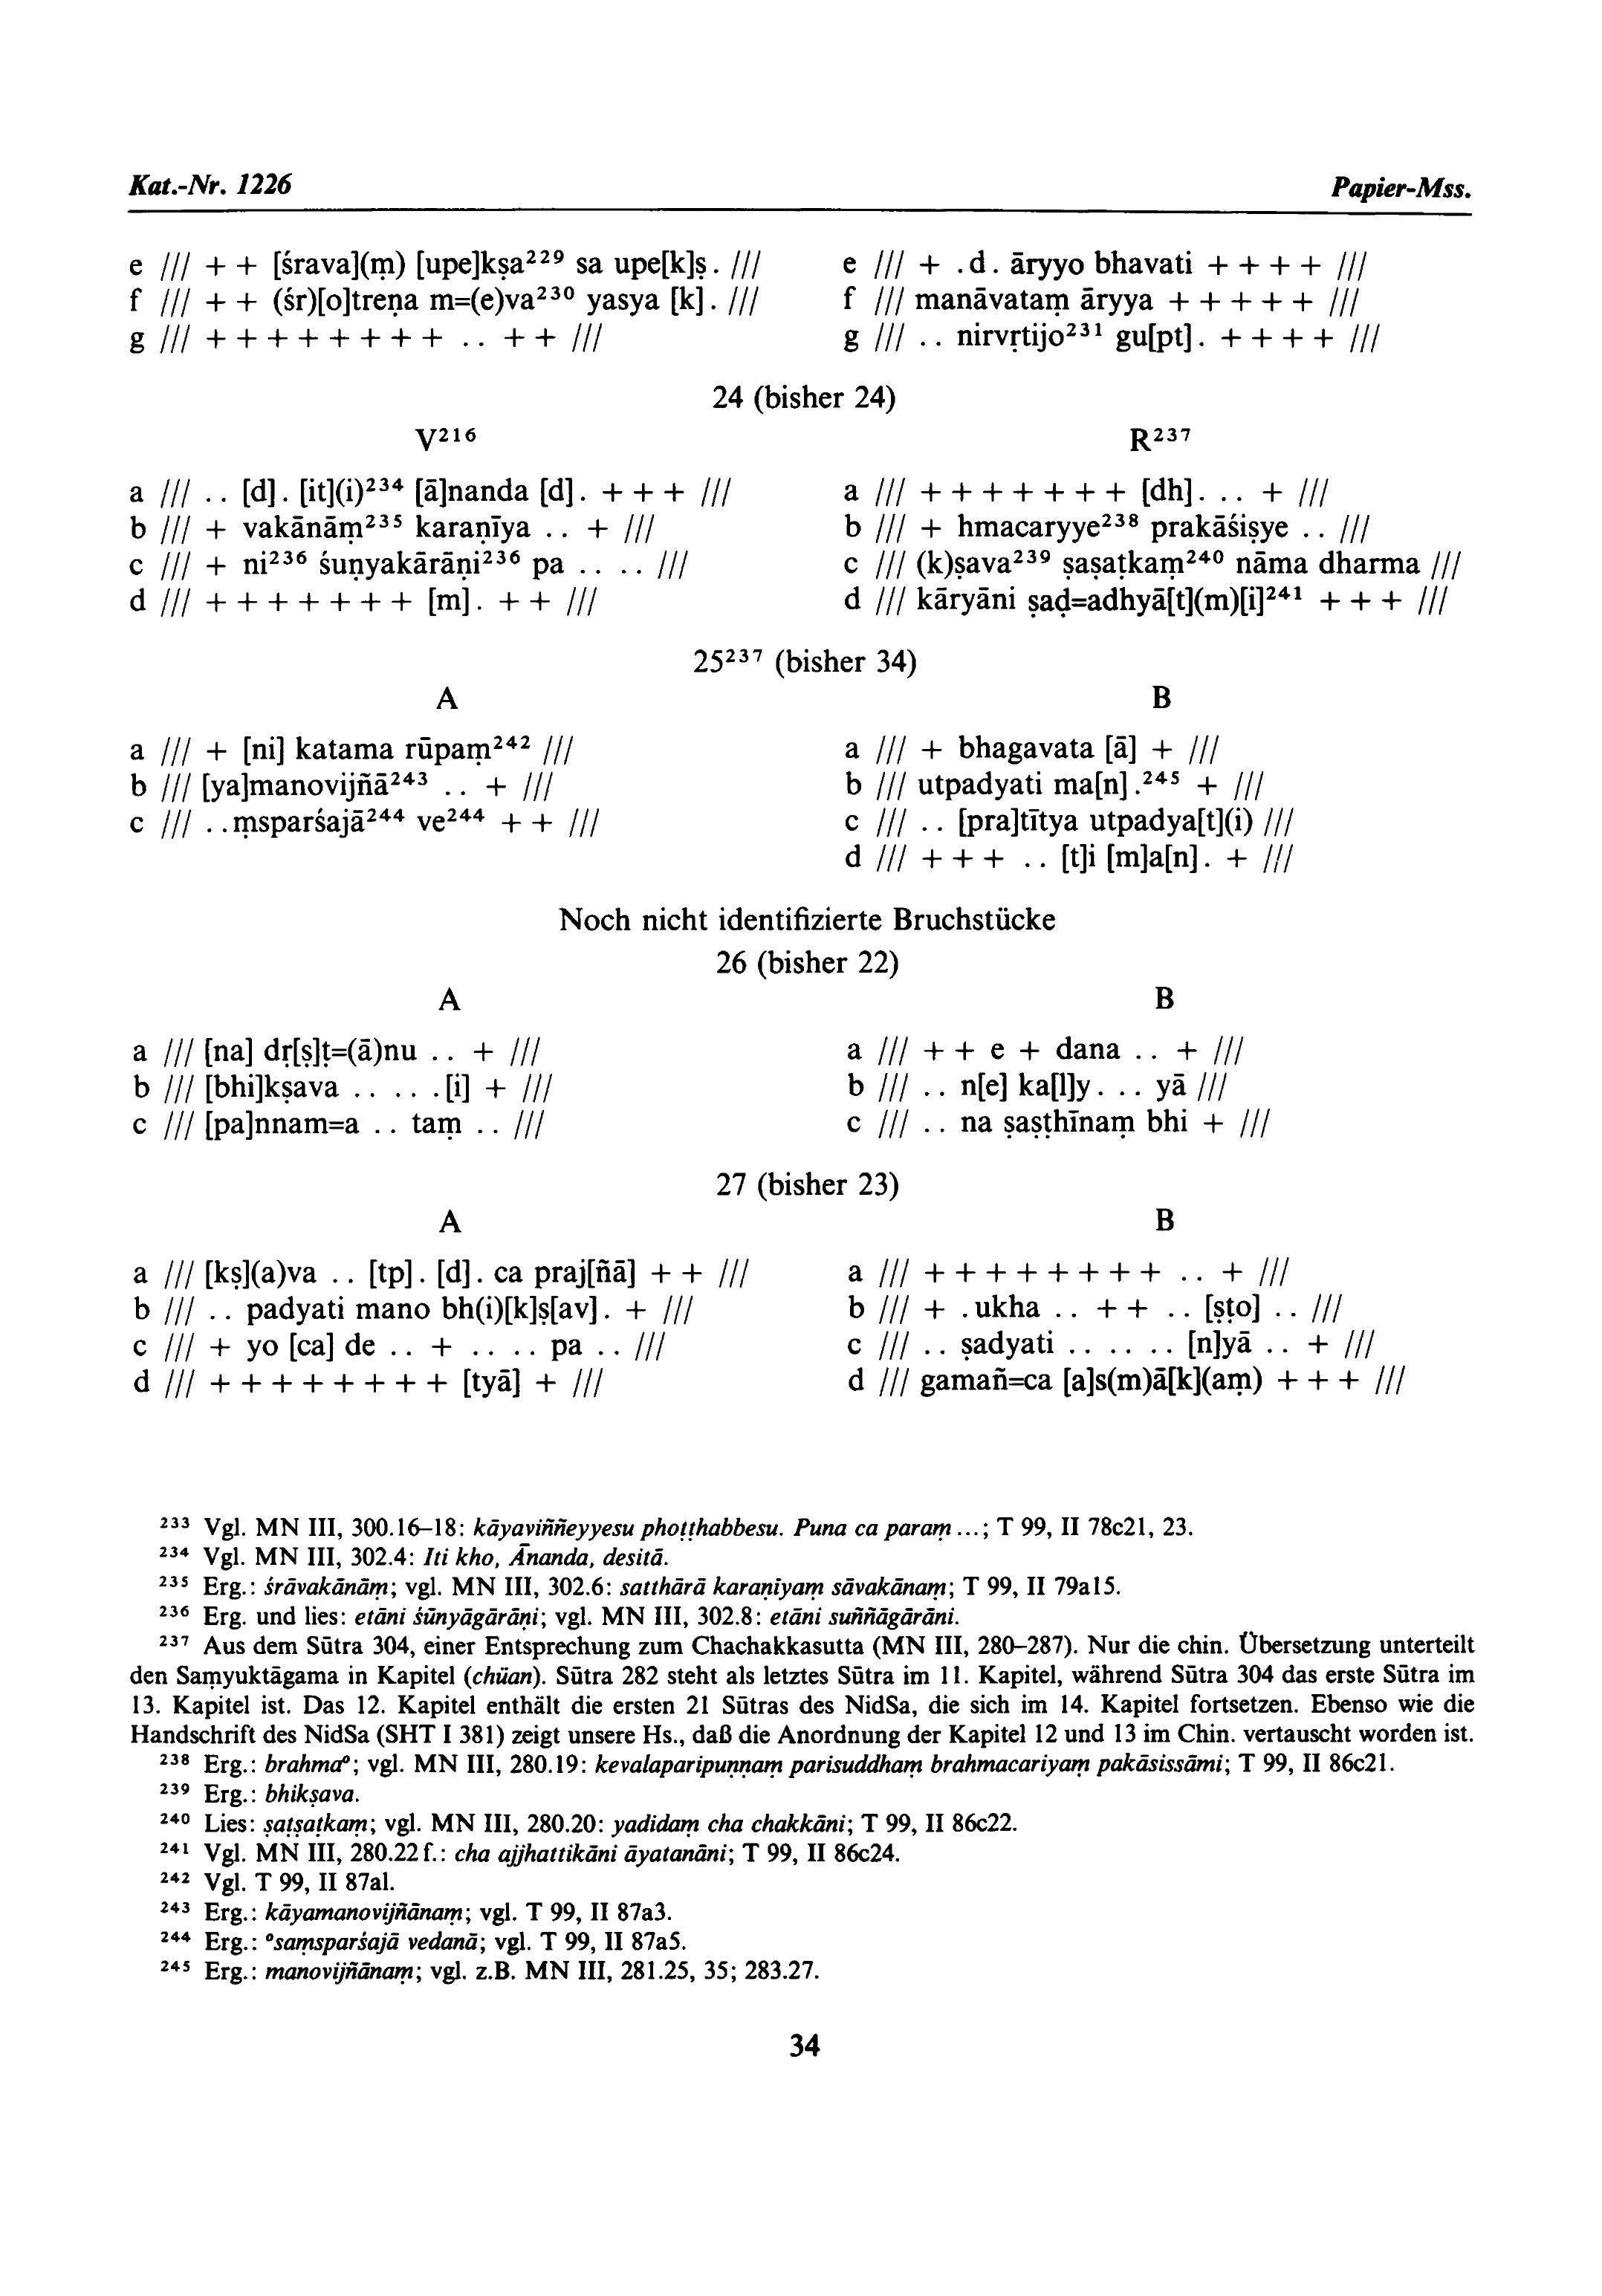 Kat.-Nr. 1226 Papier-Mss.
e /// + + [śrava](ṃ) [upe]kṣa²²⁹ sa upe[k]ṣ. ///
f /// + + (śr)[o]treṇa m=(e)va²³⁰ yasya [k]. ///
g /// + + + + + + + + .. + + ///
e /// + .d. āryyo bhavati + + + + ///
f /// manāvataṃ āryya + + + + + ///
g /// .. nirvṛtijo²³¹ gu[pt]. + + + + ///
24 (bisher 24)
V²¹⁶
a /// .. [d]. [it](i)²³⁴ [ā]nanda [d]. + + + ///
b /// + vakānāṃ²³⁵ karaṇīya .. + ///
c /// + ni²³⁶ śuṇyakārāṇi²³⁶ pa .. .. ///
d /// + + + + + + + [m]. + + ///
R²³⁷
a /// + + + + + + + [dh]. .. + ///
b /// + hmacaryye²³⁸ prakāśiṣye .. ///
c /// (k)ṣava²³⁹ ṣaṣaṭkaṃ²⁴⁰ nāma dharma ///
d /// kāryāni ṣaḍ=adhyā[t](m)[i]²⁴¹ + + + ///
25²³⁷ (bisher 34)
A
a /// + [ni] katama rūpaṃ²⁴² ///
b /// [ya]manovijñā²⁴³ .. + ///
c /// ..ṃsparśajā²⁴⁴ ve²⁴⁴ + + ///
B
a /// + bhagavata [ā] + ///
b /// utpadyati ma[n].²⁴⁵ + ///
c /// .. [pra]tītya utpadya[t](i) ///
d /// + + + .. [t]i [m]a[n]. + ///
Noch nicht identifizierte Bruchstücke
26 (bisher 22)
A
a /// [na] dṛ[ṣ]ṭ=(ā)nu .. + ///
b /// [bhi]kṣava .. .. .[i] + ///
c /// [pa]nnam=a .. taṃ .. ///
B
a /// + + e + dana .. + ///
b /// .. n[e] ka[l]y. .. yā ///
c /// .. na ṣaṣṭhīnaṃ bhi + ///
27 (bisher 23)
A
a /// [kṣ](a)va .. [tp]. [d]. ca praj[ñā] + + ///
b /// .. padyati mano bh(i)[k]ṣ[av]. + ///
c /// + yo [ca] de .. + .. .. pa .. ///
d /// + + + + + + + + [tyā] + ///
B
a /// + + + + + + + + .. + ///
b /// + .ukha .. + + .. [ṣṭo] .. ///
c /// .. ṣadyati .. .. .. [n]yā .. + ///
d /// gamañ=ca [a]s(m)ā[k](aṃ) + + + ///
²³³ Vgl. MN III, 300.16–18: kāyaviññeyyesu phoṭṭhabbesu. Puna ca paraṃ ...; T 99, II 78c21, 23.
²³⁴ Vgl. MN III, 302.4: Iti kho, Ānanda, desitā.
²³⁵ Erg.: śrāvakānāṃ; vgl. MN III, 302.6: satthārā karaṇiyaṃ sāvakānaṃ; T 99, II 79a15.
²³⁶ Erg. und lies: etāni śūnyāgārāṇi; vgl. MN III, 302.8: etāni suññāgārāni.
²³⁷ Aus dem Sūtra 304, einer Entsprechung zum Chachakkasutta (MN III, 280–287). Nur die chin. Übersetzung unterteilt
den Saṃyuktāgama in Kapitel (chüan). Sūtra 282 steht als letztes Sūtra im 11. Kapitel, während Sūtra 304 das erste Sūtra im
13. Kapitel ist. Das 12. Kapitel enthält die ersten 21 Sūtras des NidSa, die sich im 14. Kapitel fortsetzen. Ebenso wie die
Handschrift des NidSa (SHT I 381) zeigt unsere Hs., daß die Anordnung der Kapitel 12 und 13 im Chin. vertauscht worden ist.
²³⁸ Erg.: brahma°; vgl. MN III, 280.19: kevalaparipuṇṇaṃ parisuddhaṃ brahmacariyaṃ pakāsissāmi; T 99, II 86c21.
²³⁹ Erg.: bhikṣava.
²⁴⁰ Lies: ṣaṭṣaṭkaṃ; vgl. MN III, 280.20: yadidaṃ cha chakkāni; T 99, II 86c22.
²⁴¹ Vgl. MN III, 280.22 f.: cha ajjhattikāni āyatanāni; T 99, II 86c24.
²⁴² Vgl. T 99, II 87a1.
²⁴³ Erg.: kāyamanovijñānaṃ; vgl. T 99, II 87a3.
²⁴⁴ Erg.: °saṃsparśajā vedanā; vgl. T 99, II 87a5.
²⁴⁵ Erg.: manovijñānaṃ; vgl. z.B. MN III, 281.25, 35; 283.27.
34